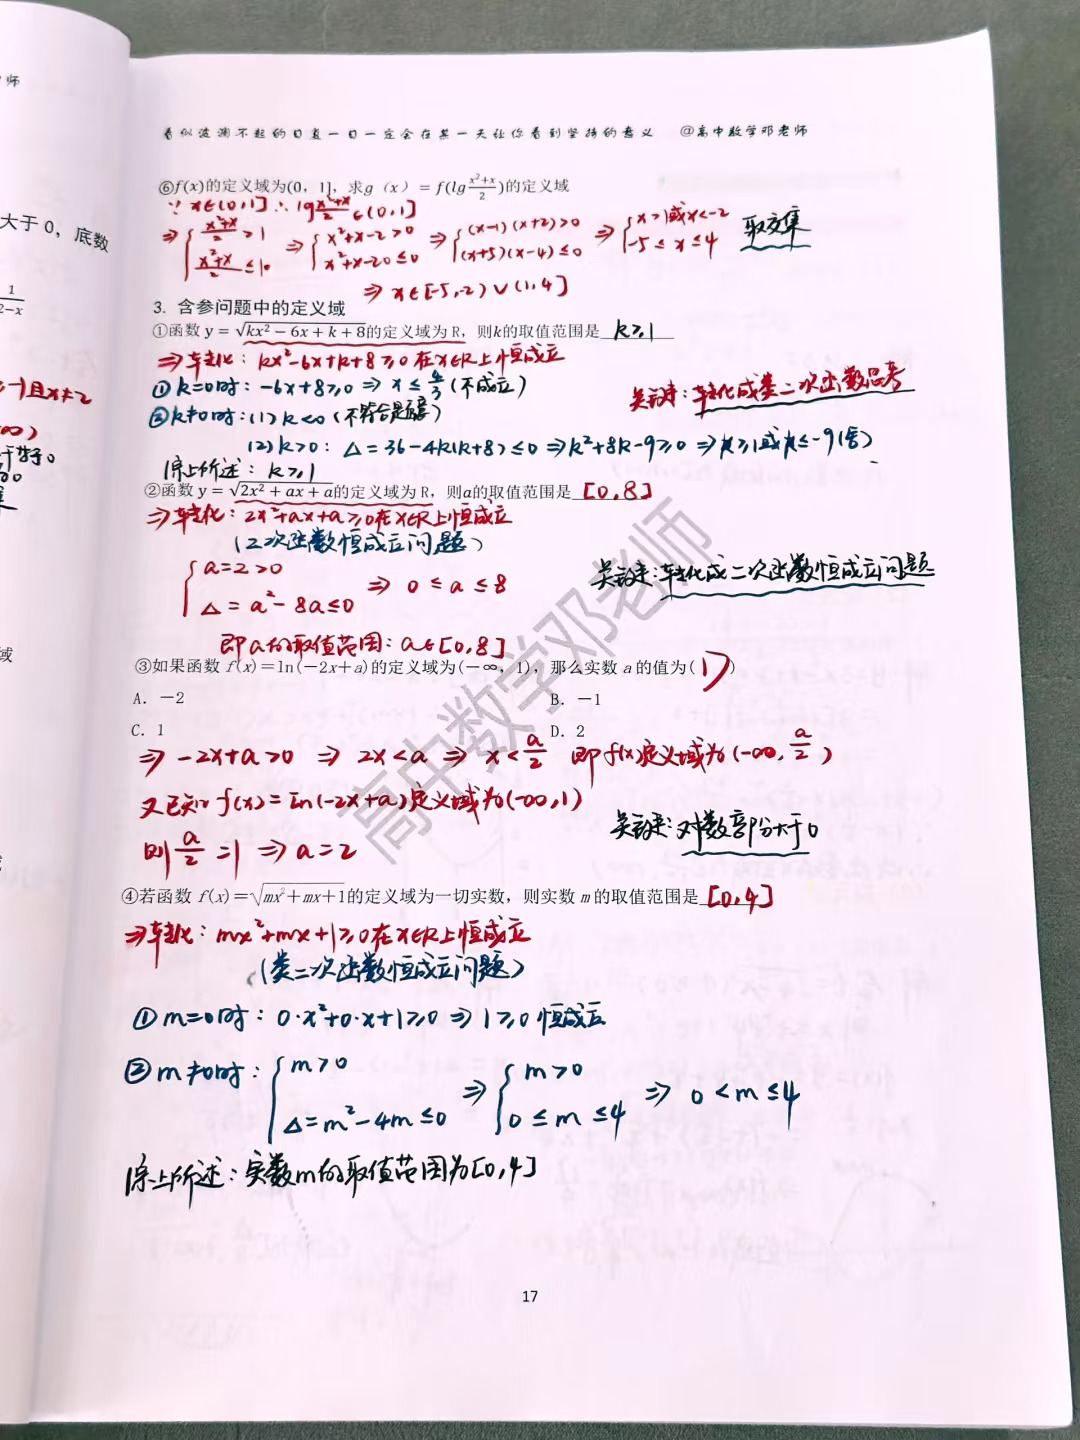 看似波澜不起的日复一日一定会在某一天让你看到坚持的意义 @高中数学邓老师
师
⑥f(x)的定义域为(0, 1], 求g（x）= f(lg (x²+x)/2)的定义域
∵ x∈(0,1] ∴ lg (x²+x)/2 ∈(0,1]
⇒ { (x²+x)/2 > 1 ⇒ { x²+x-2>0 ⇒ { (x-1)(x+2)>0 ⇒ { x>1或x<-2 取交集
(x²+x)/2 ≤ 10 x²+x-20≤0 (x+5)(x-4)≤0 -5≤x≤4
⇒ x∈[-5,-2)∪(1,4]
大于 0，底数
3. 含参问题中的定义域
①函数 y = √(kx² − 6x + k + 8)的定义域为 R，则k的取值范围是 k≥1
⇒转化: kx²-6x+k+8≥0 在x∈R上恒成立
① k=0时: -6x+8≥0 ⇒ x≤4/3 (不成立)
关键: 转化成类二次函数思考
② k≠0时: (1) k<0 (不符合题意)
(2) k>0: Δ=36-4k(k+8)≤0 ⇒k²+8k-9≥0 ⇒k≥1或k≤-9(舍)
综上所述: k≥1
②函数 y = √(2x² + ax + a)的定义域为 R，则a的取值范围是 [0,8]
⇒转化: 2x²+ax+a≥0在x∈R上恒成立
(二次函数恒成立问题)
{ a=2>0 ⇒ 0≤a≤8
Δ=a²-8a≤0
关键: 转化成二次函数恒成立问题
即a的取值范围: a∈[0,8]
③如果函数 f(x)=ln(−2x+a)的定义域为(−∞, 1), 那么实数 a 的值为( D )
A. −2 B. −1
C. 1 D. 2
⇒ -2x+a>0 ⇒ 2x<a ⇒ x<a/2 即f(x)定义域为(-∞, a/2)
又已知 f(x)=ln(-2x+a)定义域为(-∞,1)
关键: 对数部分大于0
则 a/2=1 ⇒ a=2
④若函数 f(x)=√(mx²+mx+1)的定义域为一切实数，则实数 m 的取值范围是 [0,4]
⇒转化: mx²+mx+1≥0在x∈R上恒成立
(类二次函数恒成立问题)
① m=0时: 0·x²+0·x+1≥0 ⇒ 1≥0 恒成立
② m≠0时: { m>0 ⇒ { m>0 ⇒ 0<m≤4
Δ=m²-4m≤0 0≤m≤4
综上所述: 实数m的取值范围为[0,4]
高中数学邓老师
17